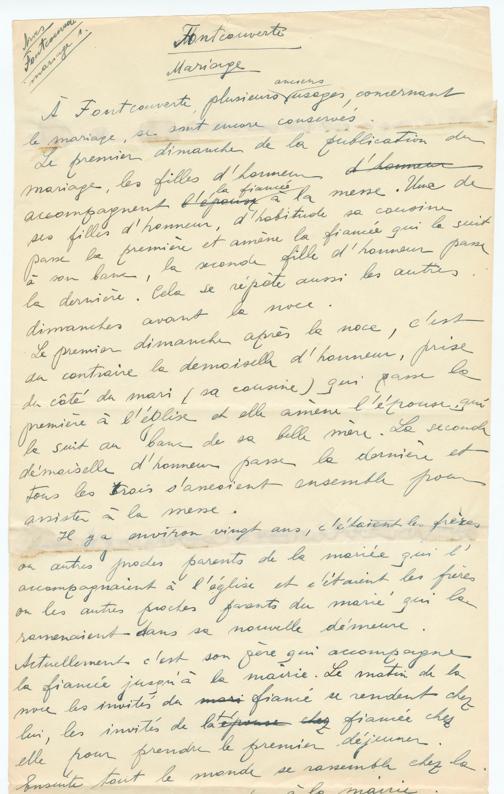 Fontcouverte
mariage 1.
Fontcouverte
Mariage
À Fontcouverte, plusieurs anciens usages, concernant
le mariage, se sont encore conservés.
Le premier dimanche de la publication du
mariage, les filles d'honneur d'honneur
accompagnent l'épouse la fiancée à la messe. Une de
ses filles d'honneur, d'habitude sa cousine
passe la première et amène la fiancée qui la suit
à son banc, la seconde fille d'honneur passe
la dernière. Cela se répète aussi les autres
dimanches avant la noce.
Le premier dimanche après la noce, c'est
au contraire la demoiselle d'honneur, prise
du côté du mari (sa cousine) qui passe la
première à l'église et elle amène l'épouse qui
la suit au banc de sa belle mère. La seconde
démoiselle d'honneur passe la dernière et
tous les trois s'asseoient ensemble pour
assister à la messe.
Il y a environ vingt ans, c'étaient les frères
ou autres proches parents de la mariée qui l'
accompagnaient à l'église et c'étaient les frères
ou les autres proches parents du marié qui la
ramenaient dans sa nouvelle démeure.
Actuellement c'est son père qui accompagne
la fiancée jusqu'à la mairie. Le matin de la
noce les invités du mari fiancé se rendent chez
lui, les invités de la épouse chez fiancée chez
elle pour prendre le premier déjeuner.
Ensuite tout le monde se rassemble chez la
à la mairie.